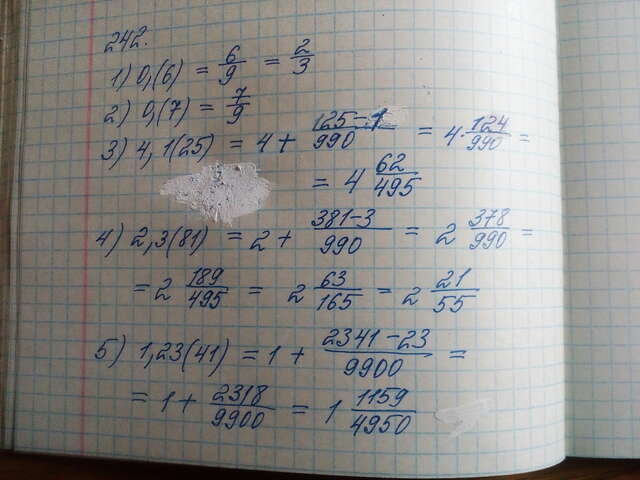 242.
1) 0,(6) = 6/9 = 2/3
2) 0,(7) = 7/9
3) 4,1(25) = 4 + (125-1)/990 = 4 · 124/990 =
= 4 62/495
4) 2,3(81) = 2 + (381-3)/990 = 2 378/990 =
= 2 189/495 = 2 63/165 = 2 21/55
5) 1,23(41) = 1 + (2341-23)/9900 =
= 1 + 2318/9900 = 1 1159/4950